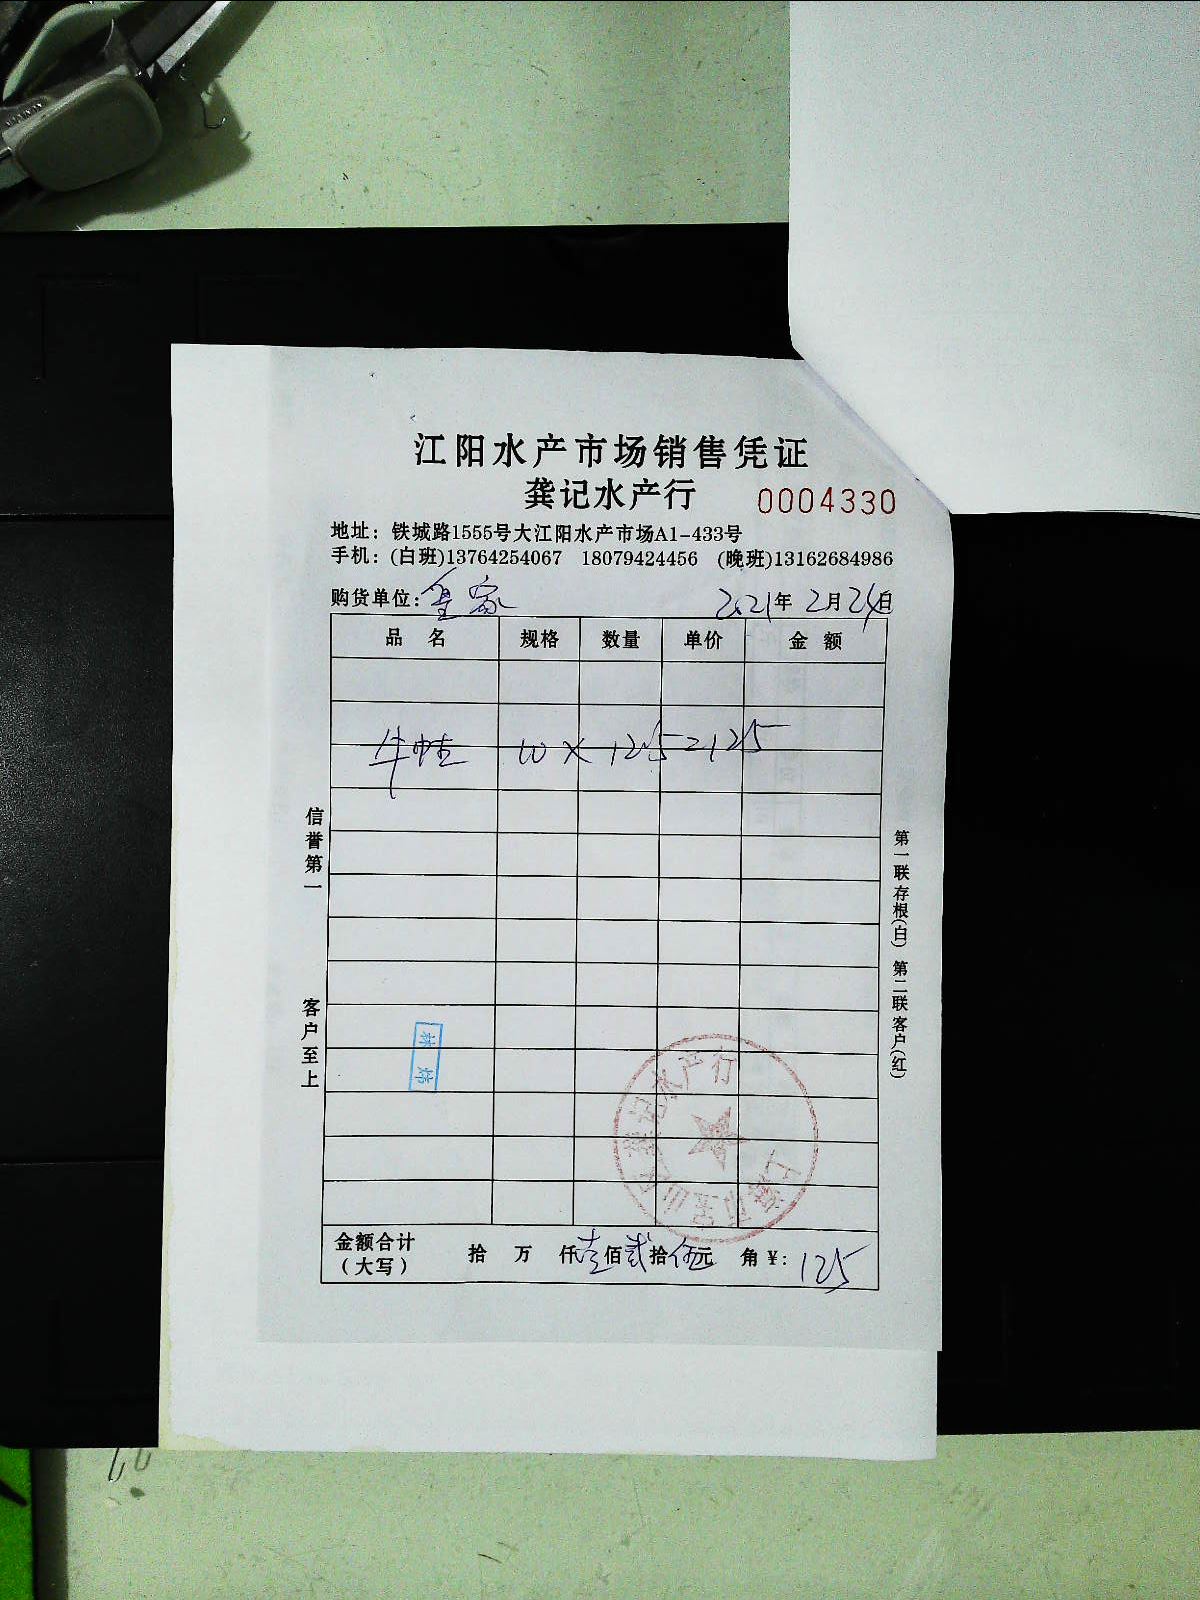 江阳水产市场销售凭证
龚记水产行 0004330
地址：铁城路1555号大江阳水产市场A1-433号
手机：(白班)13764254067 18079424456 (晚班)13162684986
购货单位：皇家 2021年2月24日
品 名 规格 数量 单价 金 额
牛蛙 10×12.5=125
信誉第一
客户至上
第一联存根(白) 第二联客户(红)
林炜
龚记水产行
金额合计 拾 万 仟壹佰贰拾伍元 角¥:125
（大写）